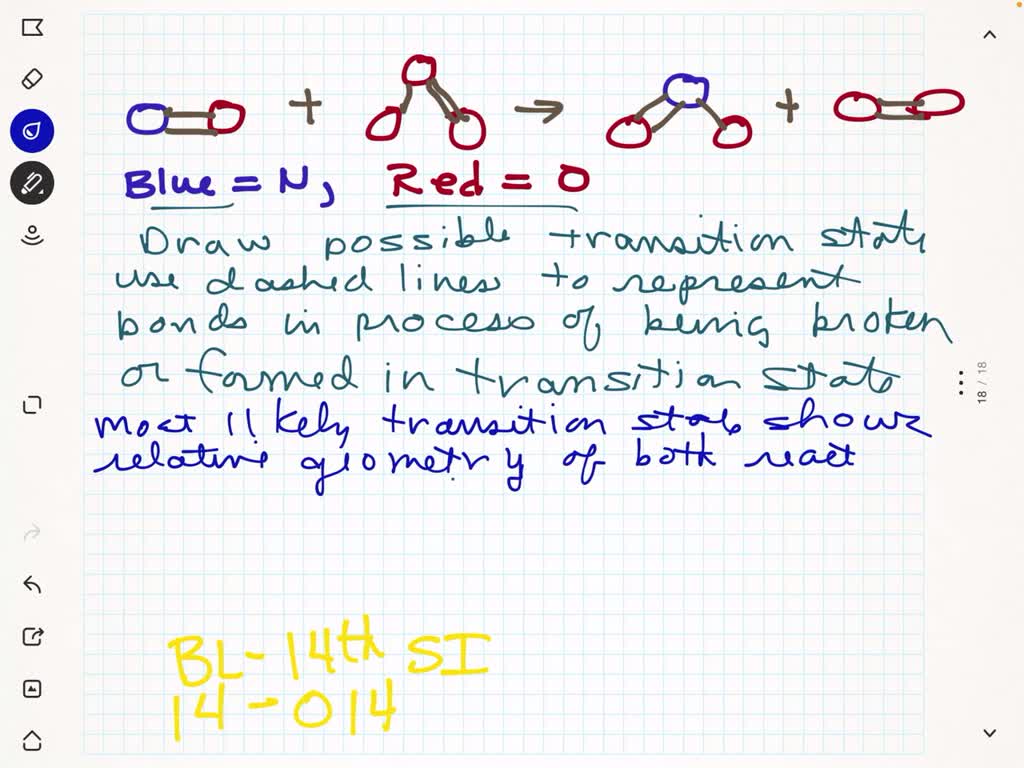 + → +
Blue = N, Red = O
Draw possible transition state
use dashed lines to represent
bonds in process of being broken
or formed in transition state
most likely transition state shows
relative geometry of both react
18 / 18
BL- 14th SI
14 - 014